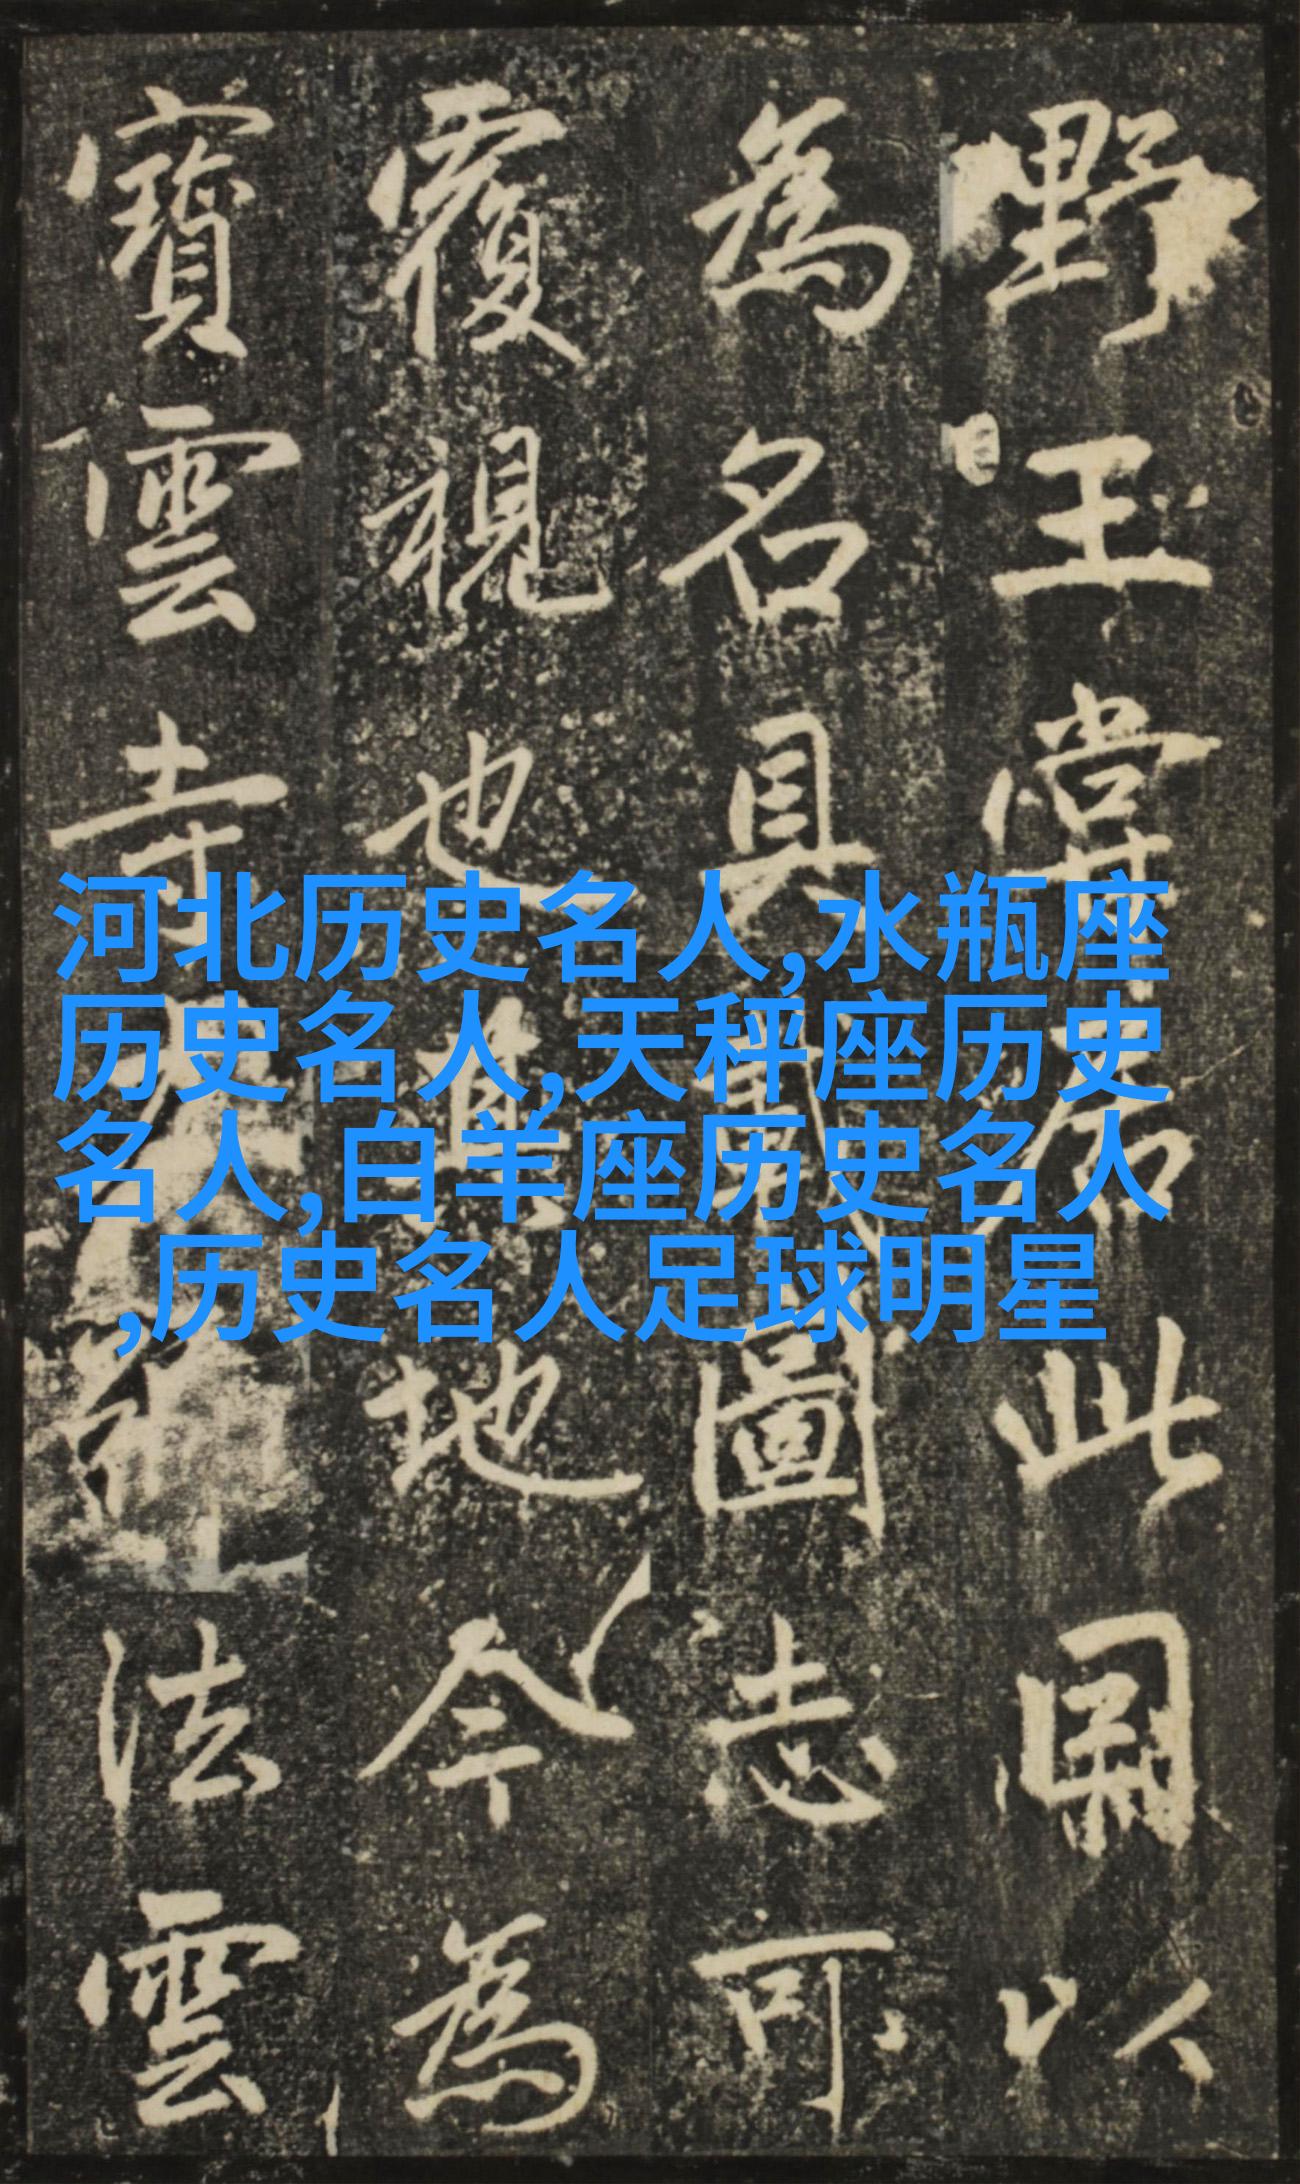 野王嘗居此以
為名具載圖志可
覆視也其地今為
寶雲寺法雲
河北历史名人,水瓶座
历史名人,天秤座历史
名人,白羊座历史名人
,历史名人足球明星